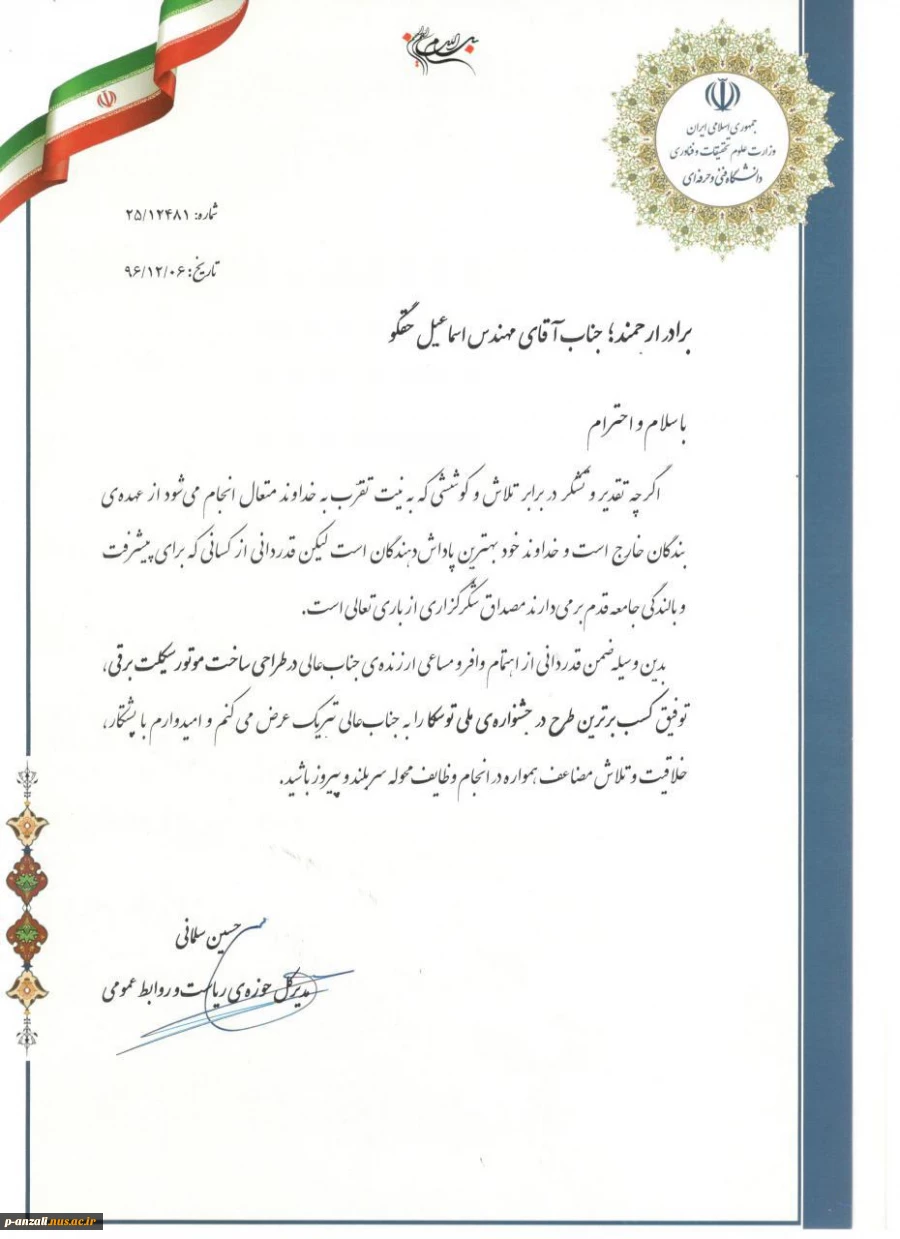 بسم الله الرحمن الرحیم
جمهوری اسلامی ایران
وزارت علوم تحقیقات و فناوری
دانشگاه فنی و حرفه‌ای
شماره: ۲۵/۱۲۴۸۱
تاریخ: ۹۶/۱۲/۰۶
برادر ارجمند؛ جناب آقای مهندس اسماعیل حقگو
با سلام و احترام
اگر چه تقدیر و تشکر در برابر تلاش و کوششی که به نیت تقرب به خداوند متعال انجام می‌شود از عهده‌ی
بندگان خارج است و خداوند خود بهترین پاداش دهندگان است لیکن قدردانی از کسانی که برای پیشرفت
و بالندگی جامعه قدم برمی‌دارند مصداق شکرگزاری از باری تعالی است.
بدین وسیله ضمن قدردانی از اهتمام وافر و مساعی ارزنده‌ی جناب‌عالی در طراحی ساخت موتورسیکلت برقی،
توفیق کسب برترین طرح در جشنواره‌ی ملی توسکا را به جناب‌عالی تبریک عرض می‌کنم و امیدوارم با پشتکار،
خلاقیت و تلاش مضاعف همواره در انجام وظایف محوله سربلند و پیروز باشید.
حسین سلمانی
مدیرکل حوزه‌ی ریاست و روابط عمومی
p-anzali.nus.ac.ir